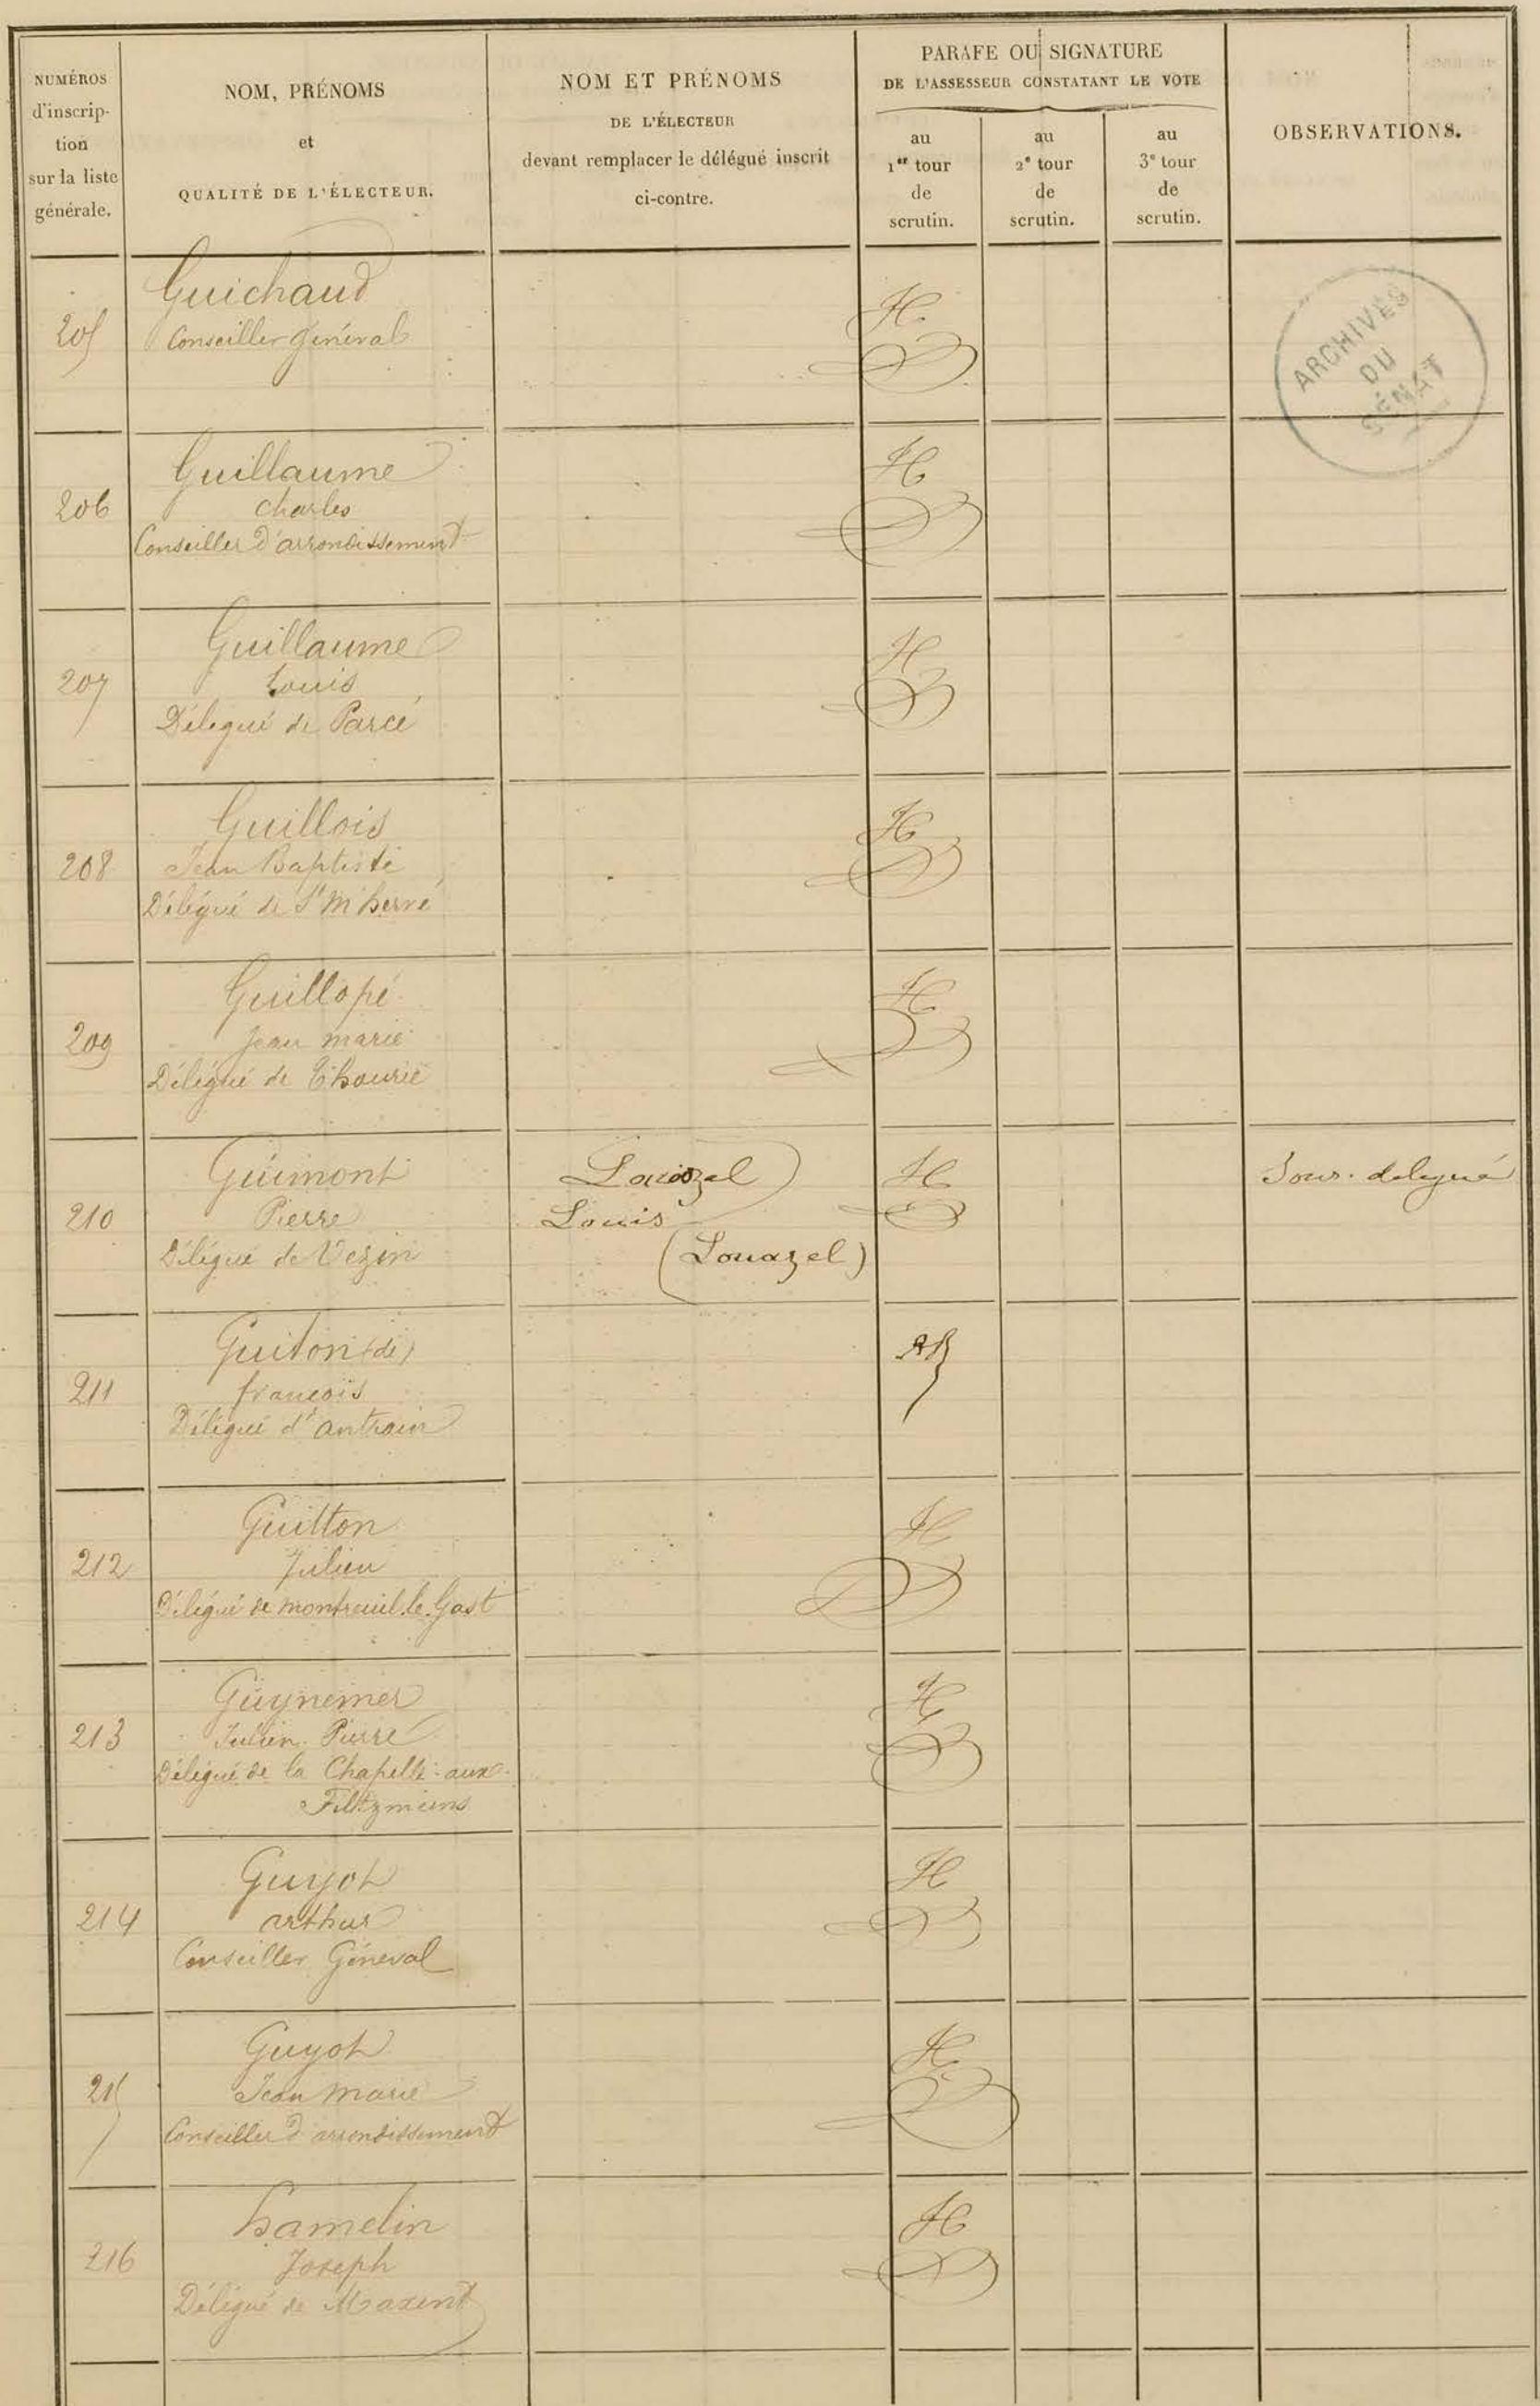 NUMÉROS
d'inscrip-
tion
sur la liste
générale.
NOM, PRÉNOMS
et
QUALITÉ DE L'ÉLECTEUR.
NOM ET PRÉNOMS
DE L'ÉLECTEUR
devant remplacer le délégué inscrit
ci-contre.
PARAFE OU SIGNATURE
DE L'ASSESSEUR CONSTATANT LE VOTE
au
1er tour
de
scrutin.
au
2e tour
de
scrutin.
au
3e tour
de
scrutin.
OBSERVATIONS.
ARCHIVES
DU
SÉNAT
205
Guichaud
Conseiller général
H
206
Guillaume
Charles
Conseiller d'arrondissement
H
207
Guillaume
Louis
Délégué de Parcé
H
208
Guillois
Jean Baptiste
Délégué de St M'hervé
H
209
Guillopé
Jean marie
Délégué de Thourie
H
210
Guimont
Pierre
Délégué de Vezin
Louis
(Louazel)
H
Sous. délégué
211
Guiton (de)
françois
Délégué d'antrain
212
Guitton
Julien
Délégué de montreuil.le.Gast
H
213
Guynemer
Julien Pierre
Délégué de la Chapelle-aux-
Filtzméens
H
214
Guyot
arthur
Conseiller Général
H
215
Guyot
Jean Marie
Conseiller d'arrondissement
H
216
hamelin
Joseph
Délégué de Maxent
H